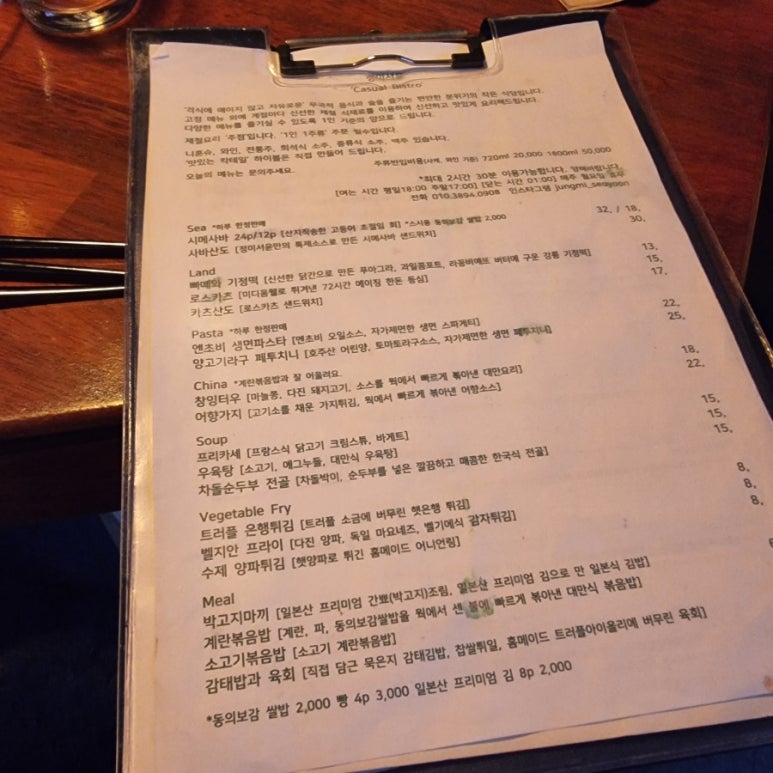 정미서윤
'Casual Bistro'
'격식에 매이지 않고 자유로운' 무국적 음식과 술을 즐기는 편안한 분위기의 작은 식당입니다.
고정 메뉴 외에 계절마다 신선한 제철 식재료를 이용하여 신선하고 맛있게 요리해드립니다.
다양한 메뉴를 즐기실 수 있도록 1인 기준의 양으로 드립니다.
제철요리 '주점'입니다. '1인 1주류' 주문 필수입니다.
니혼슈, 와인, 전통주, 희석식 소주, 증류식 소주, 맥주 있습니다.
'맛있는 칵테일' 하이볼은 직접 만들어 드립니다.
오늘의 메뉴는 문의주세요.
주류반입비용(사케, 와인 기준) 720ml 20,000 1800ml 50,000
*최대 2시간 30분 이용가능합니다. 양해바랍니다.
[여는 시간 평일18:00 주말17:00] [닫는 시간 01:00] 매주 월요일 휴무
전화 010.3894.0908 인스타그램 jungmi_seoyoon
Sea *하루 한정판매
시메사바 24p/12p [산지직송한 고등어 초절임 회] *스시용 동의보감 쌀밥 2,000 32. / 18.
사바산도 [정미서윤만의 특제소스로 만든 시메사바 샌드위치] 30.
Land
빠떼와 기정떡 [신선한 닭간으로 만든 푸아그라, 과일콤포트, 라꽁비에뜨 버터에 구운 강릉 기정떡] 13.
로스카츠 [미디움웰로 튀겨낸 72시간 에이징 한돈 등심] 15.
카츠산도 [로스카츠 샌드위치] 17.
Pasta *하루 한정판매
엔초비 생면파스타 [엔초비 오일소스, 자가제면한 생면 스파게티] 22.
양고기라구 페투치니 [호주산 어린양, 토마토라구소스, 자가제면한 생면 페투치니] 25.
China *계란볶음밥과 잘 어울려요.
창잉터우 [마늘쫑, 다진 돼지고기, 소스를 웍에서 빠르게 볶아낸 대만요리] 18.
어향가지 [고기소를 채운 가지튀김, 웍에서 빠르게 볶아낸 어향소스] 22.
Soup
프리카세 [프랑스식 닭고기 크림스튜, 바게트] 15.
우육탕 [소고기, 에그누들, 대만식 우육탕] 15.
차돌순두부 전골 [차돌박이, 순두부를 넣은 깔끔하고 매콤한 한국식 전골] 15.
Vegetable Fry
트러플 은행튀김 [트러플 소금에 버무린 햇은행 튀김] 8.
벨지안 프라이 [다진 양파, 독일 마요네즈, 벨기에식 감자튀김] 8.
수제 양파튀김 [햇양파로 튀긴 홈메이드 어니언링] 8.
Meal
박고지마끼 [일본산 프리미엄 간뾰(박고지)조림, 일본산 프리미엄 김으로 만 일본식 김밥]
계란볶음밥 [계란, 파, 동의보감쌀밥을 웍에서 센 불에 빠르게 볶아낸 대만식 볶음밥]
소고기볶음밥 [소고기 계란볶음밥]
감태밥과 육회 [직접 담근 묵은지 감태김밥, 찹쌀튀일, 홈메이드 트러플아이올리에 버무린 육회]
*동의보감 쌀밥 2,000 빵 4p 3,000 일본산 프리미엄 김 8p 2,000